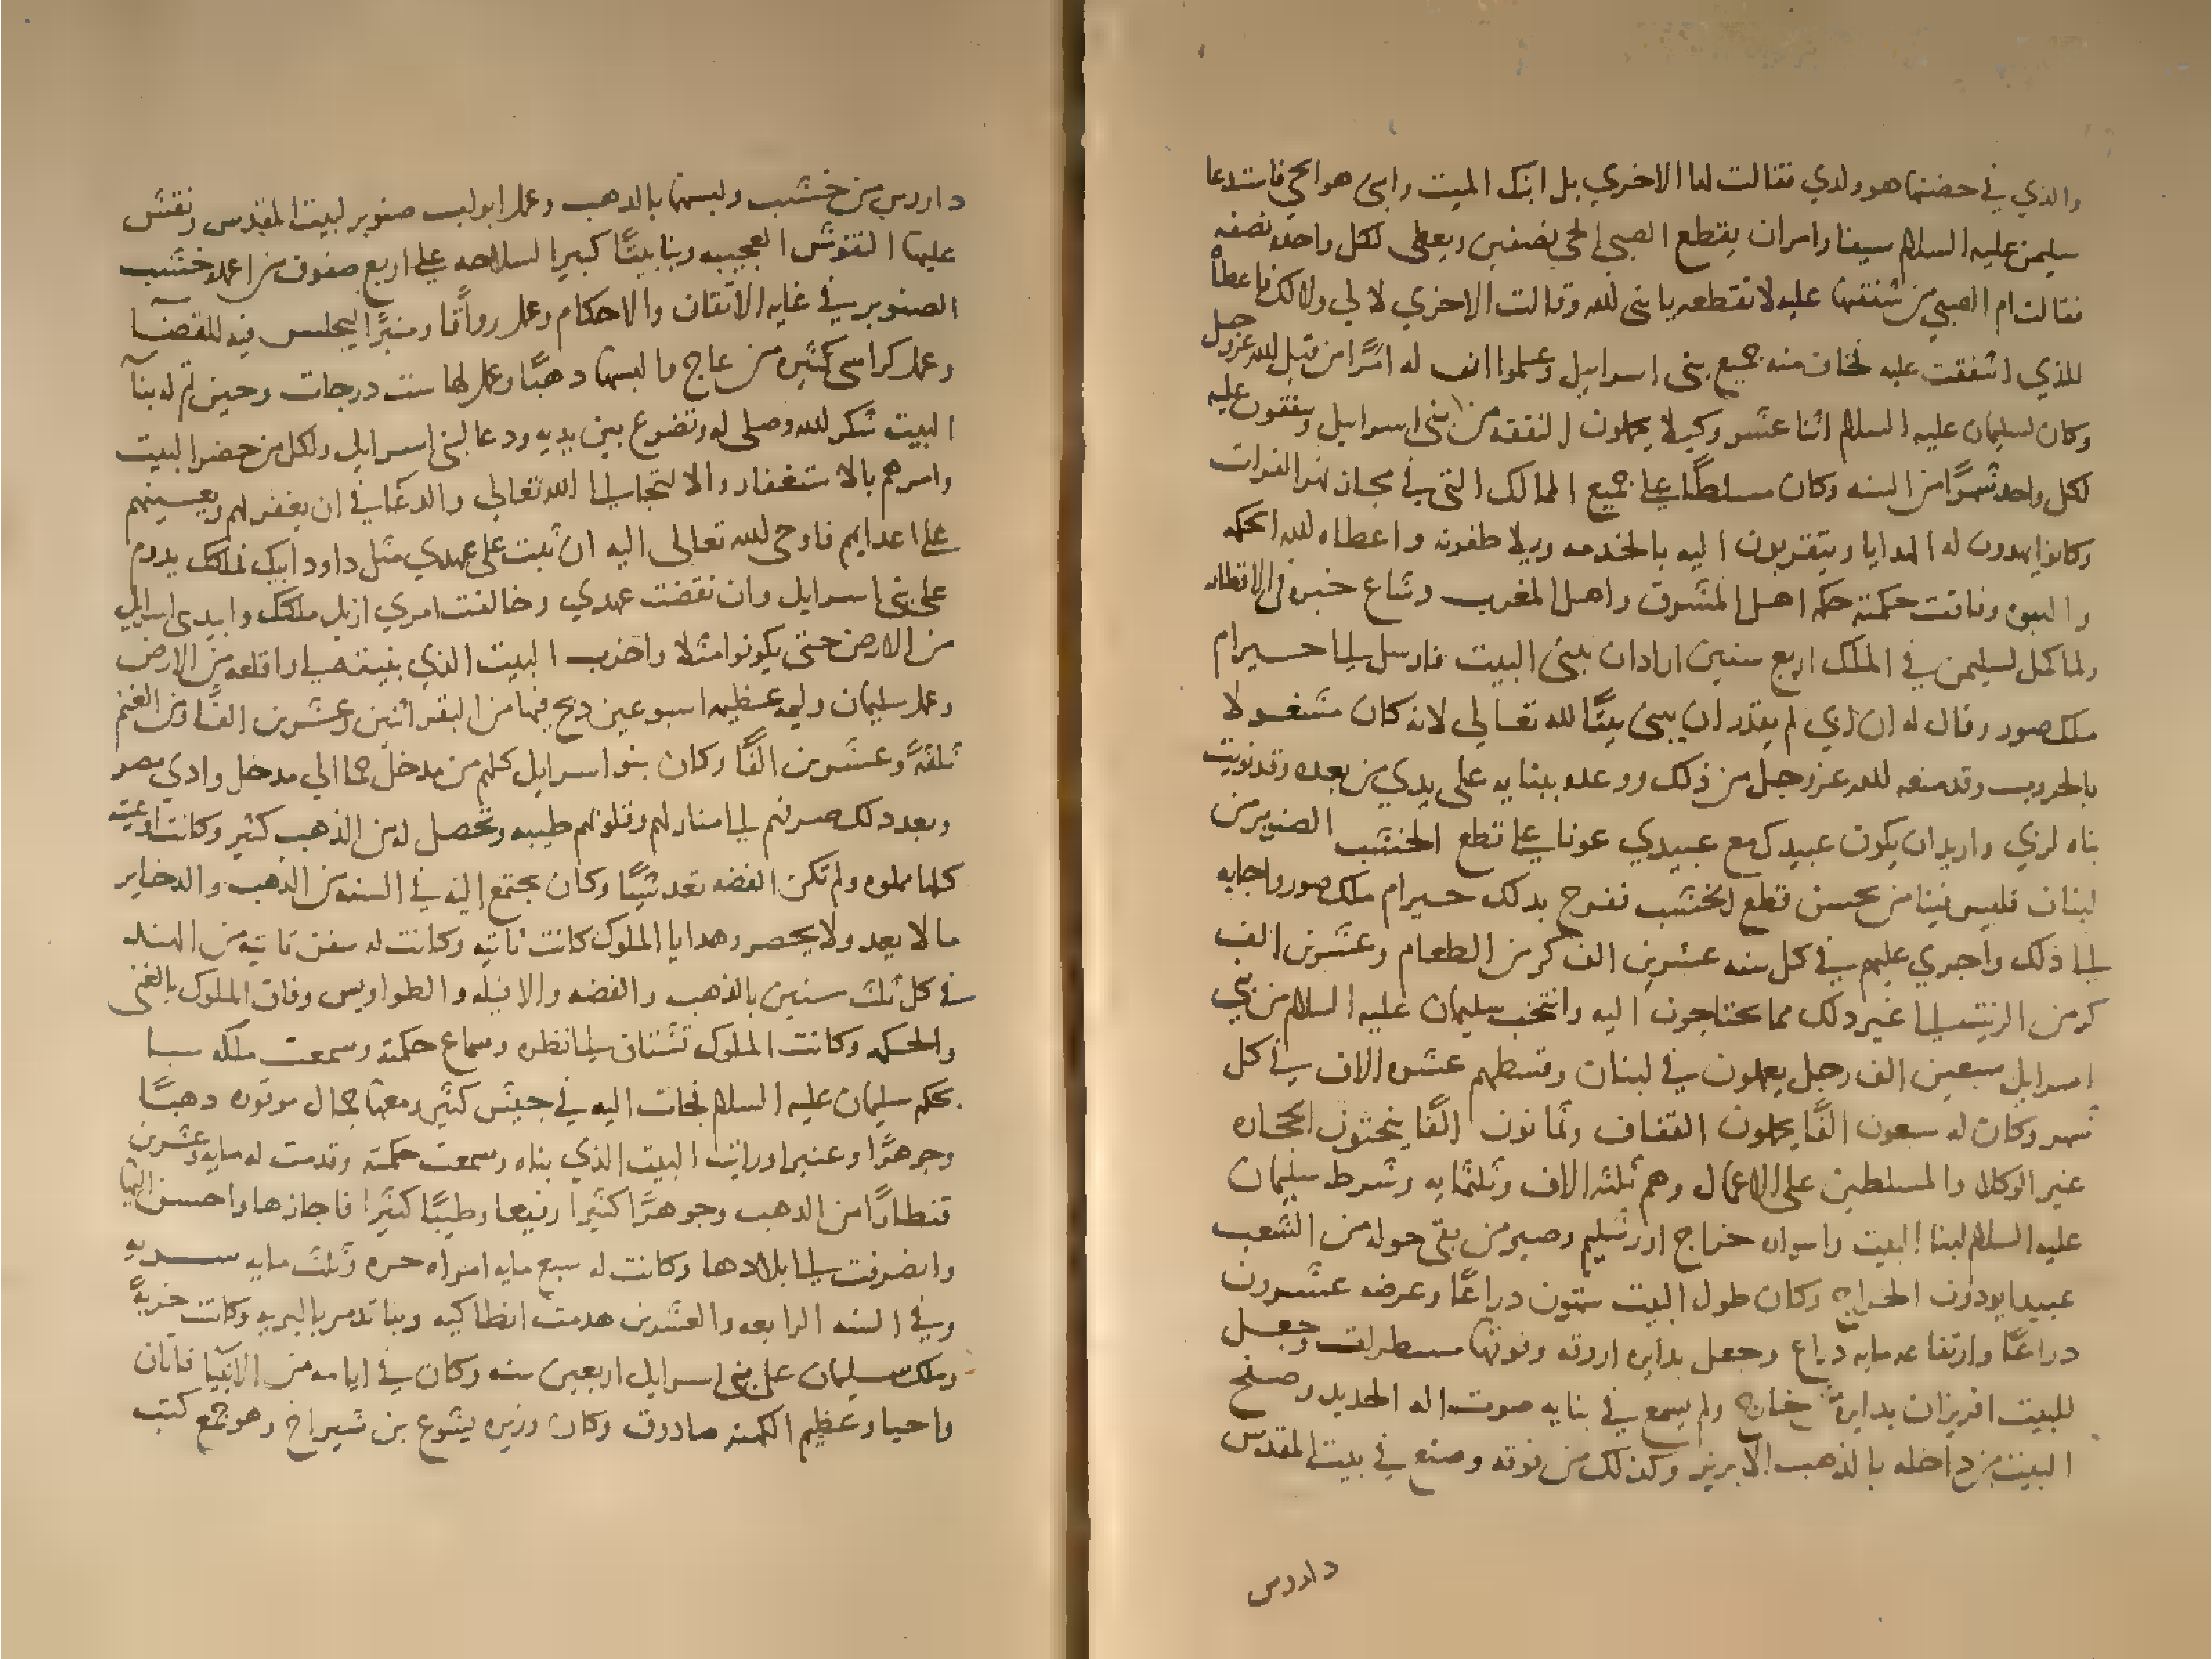 والذي في حضنها هو ولدي فقالت لها الاخري بل ابنك الميت وابني هو الحي فاستدعا
سليمن عليه السلام سيفا وامران يقطع الصبي الحي بنصفين ويعطى لكل واحده نصفه
فقالت ام الصبي من شفقتها عليه لا تقطعه يا نبى لله وقالت الاخري لا لي ولا لك فاعطاه
للذي اشفقت عليه فخاف منه جميع بنى اسرايل وعلموا انه له امرًا من قبل لله عز وجل
وكان لسليمان عليه السلام اثنا عشر وكيلا يحملون النفقه من بنى اسرايل وينفقون عليه
لكل واحد شهرًا من السنه وكان مسلطًا على جميع الممالك التي في مجاز نهر الفرات
وكانوا يهدون له الهدايا ويتقربون اليه بالخدمه ويلاطفونه واعطاه لله الحكمه
والنبوه وفاقت حكمته حكمه اهل المشرق واهل المغرب وشاع خبره في الاقطار
ولما كمل لسليمن في الملك اربع سنين ارادان يبنى البيت فارسل الى حيرام
ملك صور وقال له ان ابي لم يقدر ان يبنى بيتًا لله تعالي لانه كان مشغولا
بالحروب وقد منعه لله عز وجل من ذلك ووعده ببنايه على يدي من بعده وقد نويت
بناه لربي واريد ان يكون عبيدك مع عبيدي عونا على قطع الخشب الصنوبر من
لبنان فليس فينا من يحسن قطع الخشب ففرح بدلك حيرام ملك صور واجابه
الى ذلك واجري عليهم في كل سنه عشرين الف كر من الطعام وعشرين الف
كر من الزيت الى غير دلك مما يحتاجون اليه وانتخب سليمان عليه السلام من بني
اسرايل سبعين الف رجل يعملون في لبنان وقسطهم عشره الاف في كل
شهر وكان له سبعون الفًا يحملون القفاف وثمانون الفًا ينحتون الحجاره
غير الوكلا والمسلطين على الاعمال وهم ثلثه الاف وثلثمايه وشرط سليمان
عليه السلام لبنا البيت واسواره خراج اورشليم وصير من بقى حوله من الشعب
عبيدا يودون الخراج وكان طول البيت ستون دراعًا وعرضه عشرون
دراعًا وارتفاعه مايه دراع وجعل بدايره اروقه وفوقها مسطرات وجعل
للبيت افريزان بدايره خارج ولم يسمع في بنايه صوت اله الحديد وصفح
البيت من داخله بالذهب الابريز وكذلك من فوقه وصنع في بيت المقدس
داردس
داردس من خشب ولبسها بالدهب وعمل ابواب صنوبر لبيت المقدس ونقش
عليها النقوش العجيبه وبنا بيتًا كبيرا لسلاحه على اربع صفوف من اعمده خشب
الصنوبر في غايه الاتقان والاحكام وعمل رواقًا ومنبرًا ليجلس فيه للقضا
وعمل كراسى كثيره من عاج والبسها دهبًا وعمل لها ست درجات وحين تم له بنآ
البيت شكر لله وصلى له وتضوع بين يديه ودعا لبنى اسرايل ولكل من حضر البيت
وامرهم بالاستغفار والالتجا الى الله تعالي والدعا في ان يغفر لهم ويعينهم
على اعدايهم فاوحى لله تعالى اليه ان ثبت على عهدي مثل داود ابيك فملكك يدوم
على بنى اسرايل وان نقضت عهدي وخالفت امري ازيل ملكك وابيد بنى اسرايل
من الارض حتى يكونوا مثلا واخرب البيت الذي بنيته لي واقلعه من الارض
وعمل سليمان وليمه عظيمه اسبوعين دبح فيها من البقر اثنين وعشرين الفًا ومن الغنم
ثلثةً وعشرين الفًا وكان بنو اسرايل كلهم من مدخل حما الي مدخل وادي مصر
وبعد دلك صرفهم الى منازلهم وقلوبهم طيبه وتحصل له من الذهب كثير وكانت اوعيته
كلها مملوه ولم تكن الفضه تعد شيًا وكان يجتمع اليه في السنه من الذهب والدخاير
ما لا يعد ولا يحصر وهدايا الملوك كانت تاتيه وكانت له سفن تاتيه من الهند
في كل ثلث سنين بالذهب والفضه والافيله والطواويس وفاق الملوك بالغنى
والحكمه وكانت الملوك تشتاق الى نظره وسماع حكمته وسمعت ملكه سبا
بحكم سليمان عليه السلام فجات اليه في جيش كثير ومعها جمال موقوره دهبًا
وجوهرًا وعنبرا ورات البيت الذي بناه وسمعت حكمته وقدمت له مايه وعشرين
قنطارًا من الدهب وجوهرًا كثيرا رفيعا وطيبًا كثيرا فاجازها واحسن اليها
وانصرفت الى بلادها وكانت له سبع مايه امراه حره وثلث مايه سريه
وفي السنه الرابعه والعشرين هدمت انطاكيه وبنا تدمر بالبريه وكانت خربةً
وملك سليمان على بنى اسرايل اربعين سنه وكان في ايامه من الانبيا ناثان
واحيا وعظيم الكهنه صادوق وكان وزيره يشوع بن شيراخ وهو جمع كتب